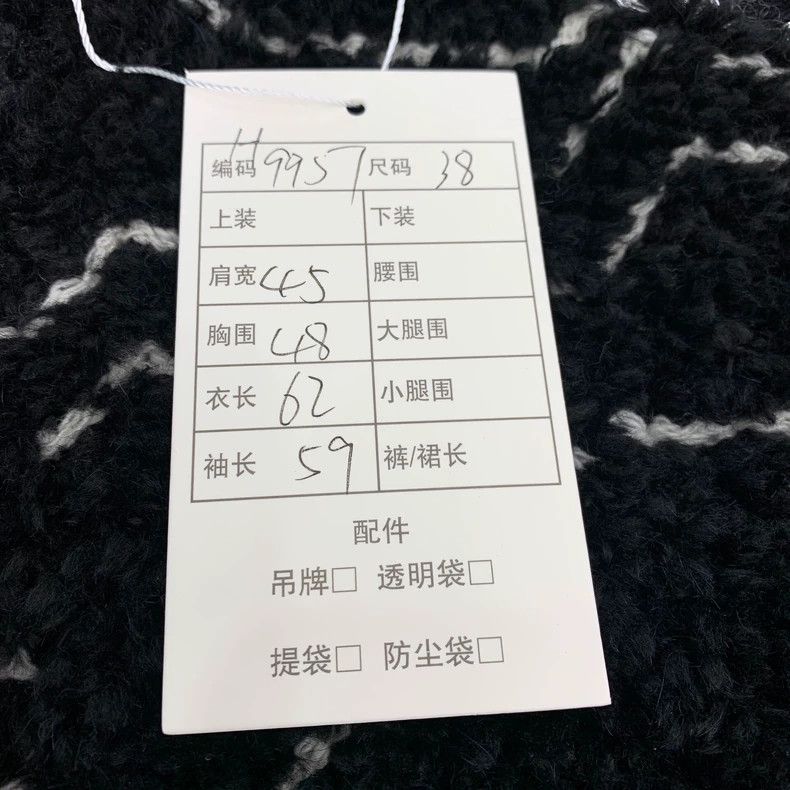 编码 H9957 尺码 38
上装 下装
肩宽 45 腰围
胸围 48 大腿围
衣长 62 小腿围
袖长 59 裤/裙长
配件
吊牌□ 透明袋□
提袋□ 防尘袋□